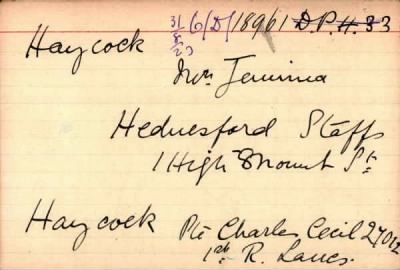 Haycock 31/8/23 6/D/18961 D.P.H. 33
Mrs Jemima
Hednesford Staffs
1 High Mount St
Haycock Pte Charles Cecil 27012
1st R. Lancs.